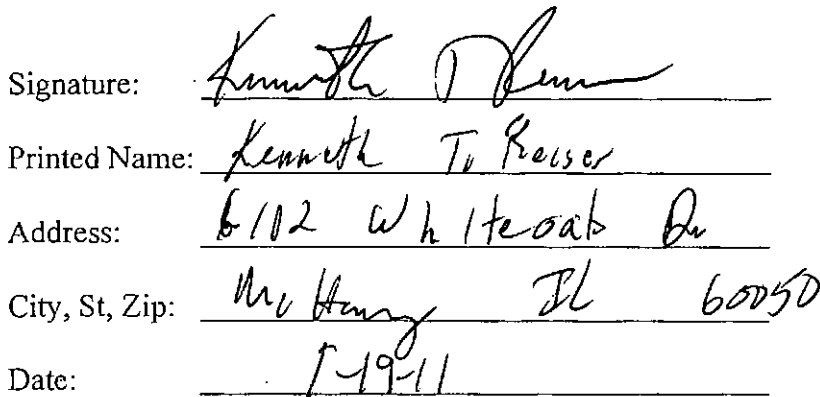 Signature: Kenneth T
Printed Name: Kenneth T. Reiser
Address: 6102 Whiteoak Dr
City, St, Zip: McHenry IL 60050
Date: -19-11